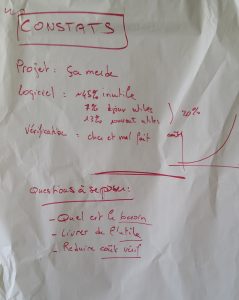 CONSTATS
Projet : ça merde
Logiciel : ~45% inutile
7% tjours utiles
13% souvent utiles
20%
Vérification : cher et mal fait
coût
Questions à se poser :
- Quel est le besoin
- Livrer de l'utile
- Réduire coût vérif